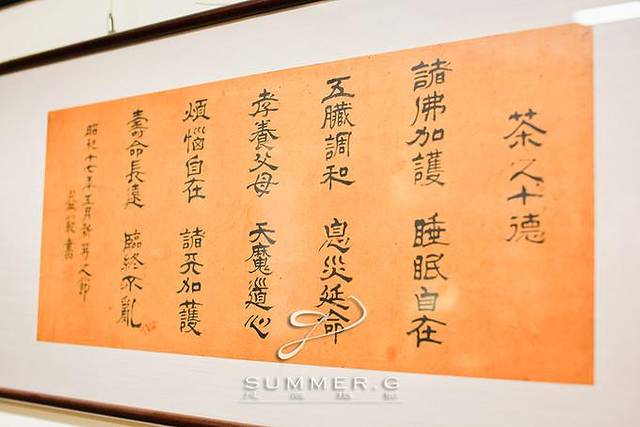 茶之十德
諸佛加護 睡眠自在
五臟調和 息災延命
孝養父母 天魔道心
煩惱自在 諸天加護
壽命長遠 臨終不亂
昭和十七年五月新之節
書
SUMMER.G